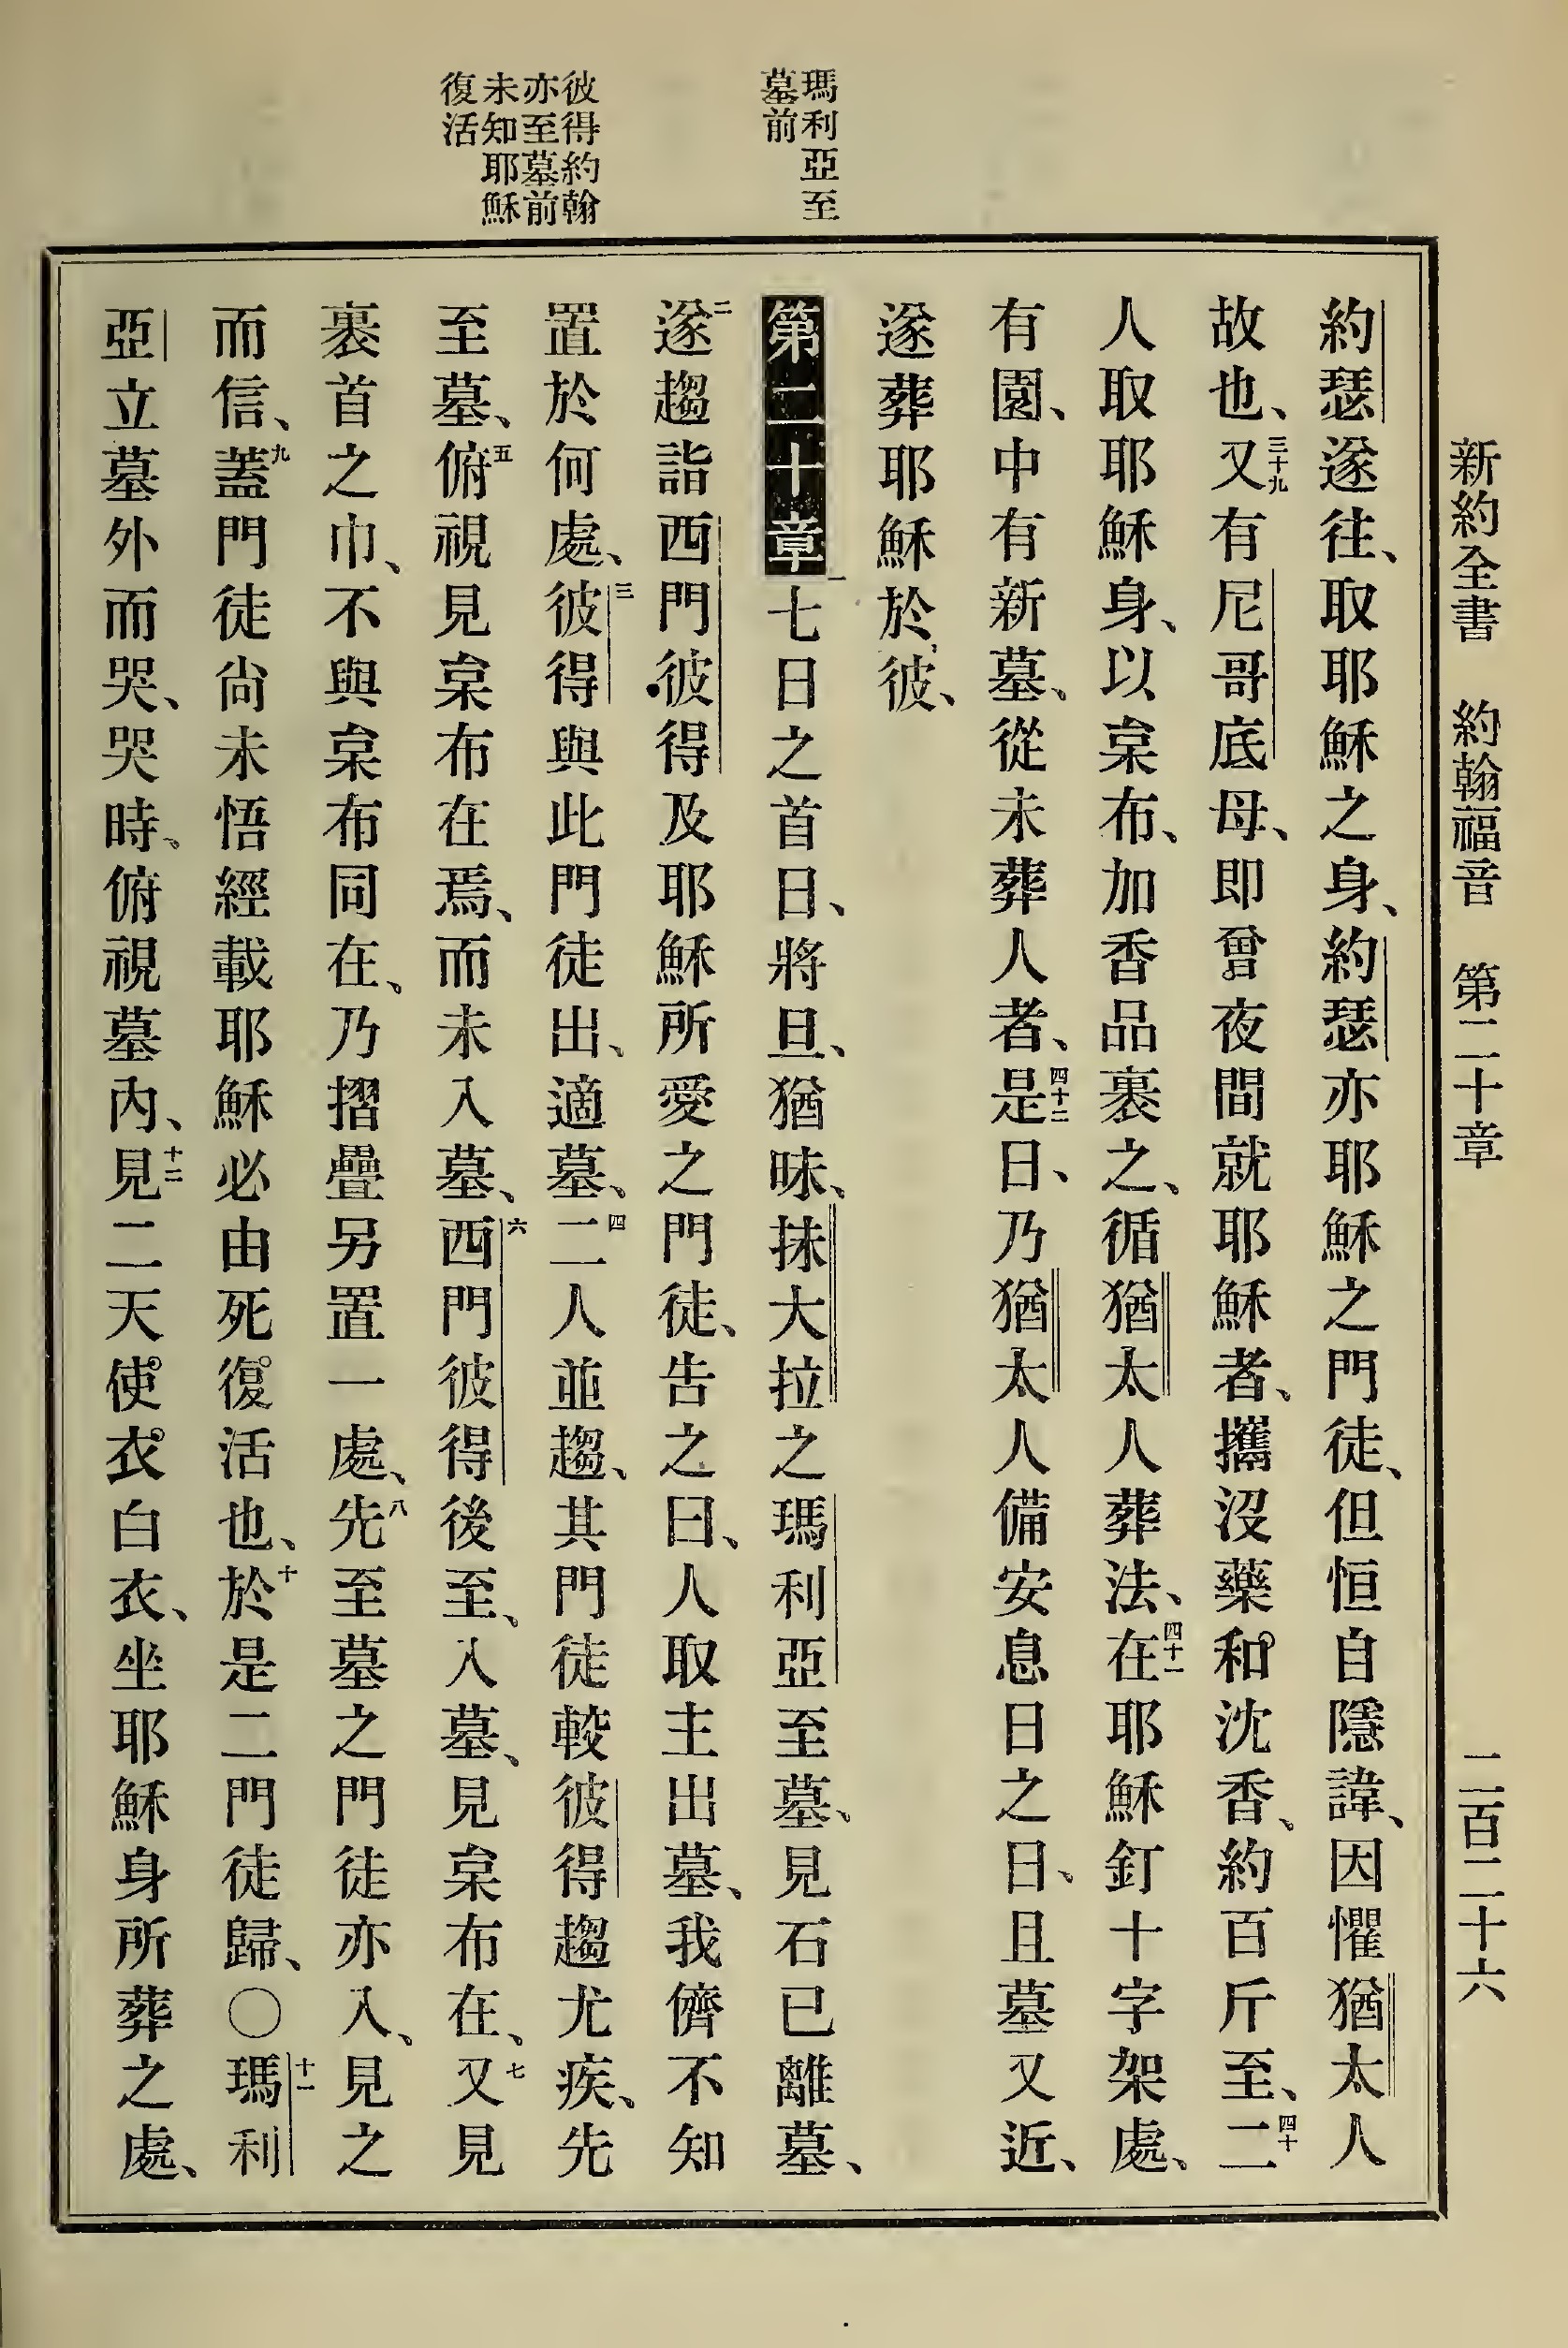 新約全書 約翰福音 第二十章 二百二十六
瑪利亞至
墓前
彼得約翰
亦至墓前
未知耶穌
復活
約瑟遂往、取耶穌之身、約瑟亦耶穌之門徒、但恒自隱諱、因懼猶太人
故也、三十九又有尼哥底母、即曾夜間就耶穌者、攜沒藥和沈香、約百斤至、四十二
人取耶穌身、以枲布、加香品裹之、循猶太人葬法、四十一在耶穌釘十字架處、
有園、中有新墓、從未葬人者、四十二是日、乃猶太人備安息日之日、且墓又近、
遂葬耶穌於彼、
第二十章 一七日之首日、將旦、猶昧、抹大拉之瑪利亞至墓、見石已離墓、
二遂趨詣西門彼得及耶穌所愛之門徒、告之曰、人取主出墓、我儕不知
置於何處、三彼得與此門徒出、適墓、四二人並趨、其門徒較彼得趨尤疾、先
至墓、五俯視見枲布在焉、而未入墓、六西門彼得後至、入墓、見枲布在、七又見
裹首之巾、不與枲布同在、乃摺疊另置一處、八先至墓之門徒亦入、見之
而信、九蓋門徒尚未悟經載耶穌必由死復活也、十於是二門徒歸、〇十一瑪利
亞立墓外而哭、哭時、俯視墓內、十二見二天使衣白衣、坐耶穌身所葬之處、